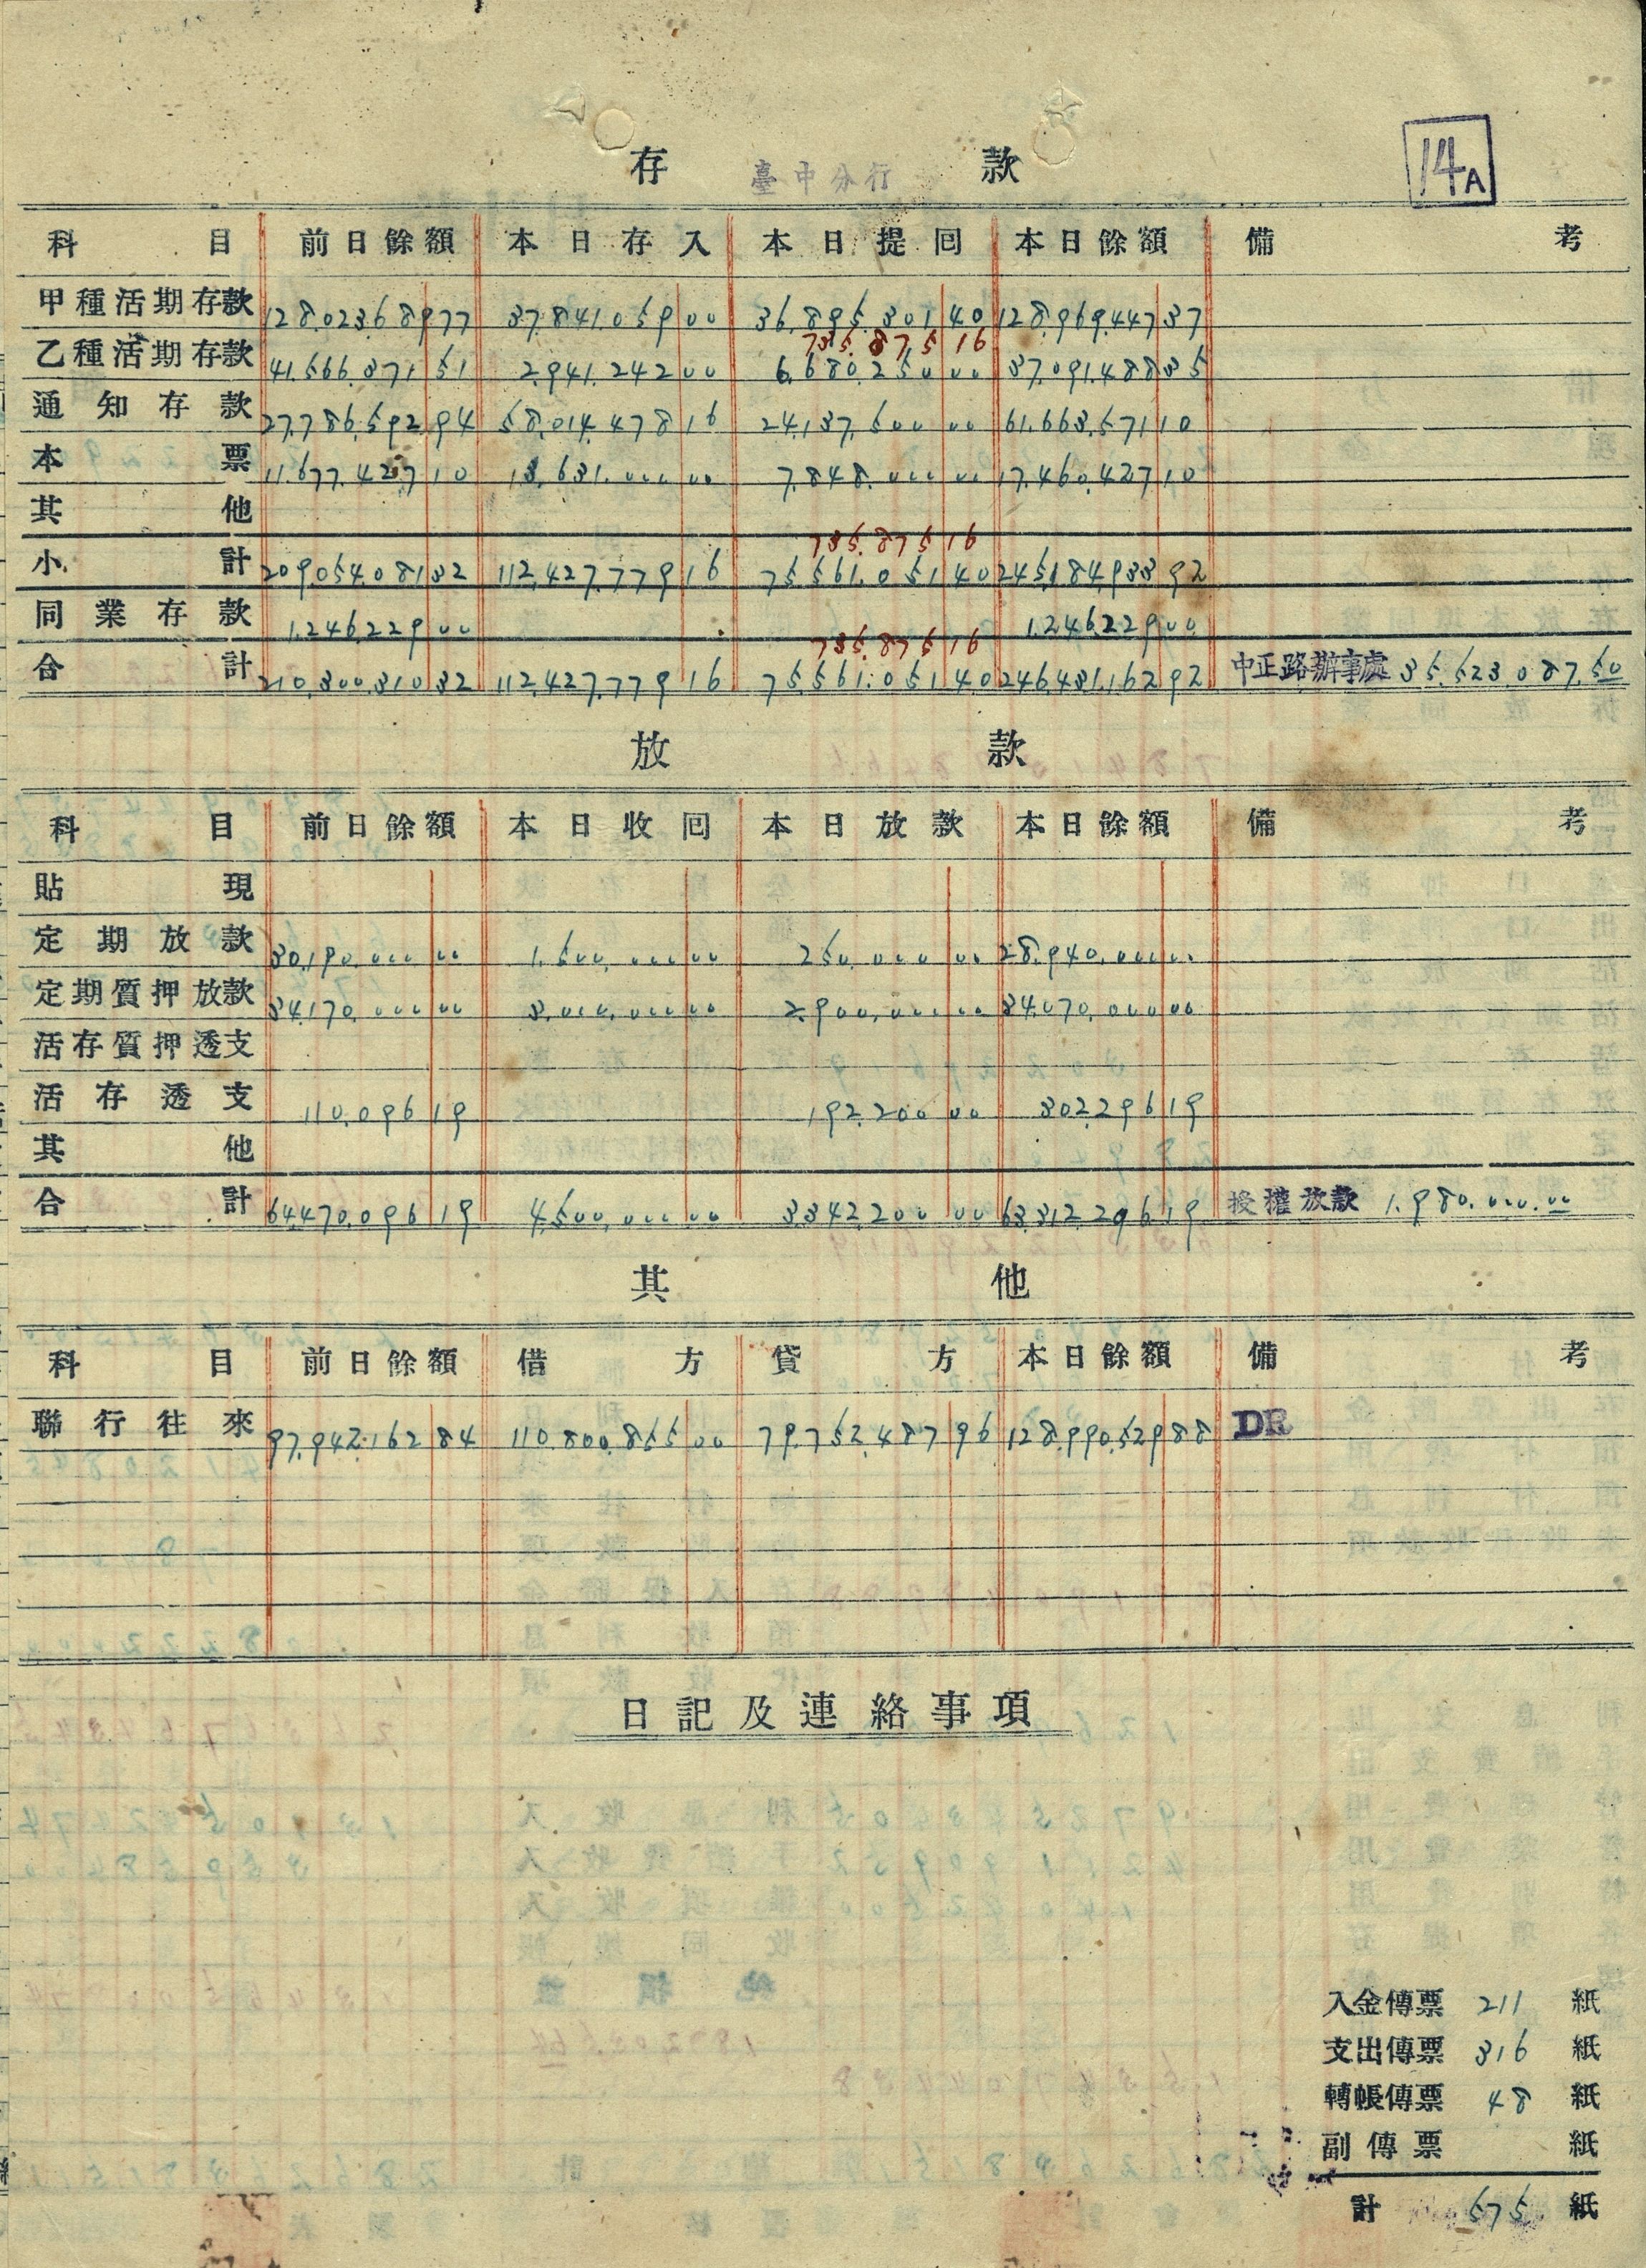 14A
存 臺中分行 款
科目 前日餘額 本日存入 本日提回 本日餘額 備考
甲種活期存款 128,023,689 77 37,841,059 00 36,895,301 40 128,969,447 37
735,875 16
乙種活期存款 41,566,371 51 2,941,242 00 6,680,250 00 37,091,488 35
通知存款 27,786,592 94 58,014,478 16 24,137,500 00 61,663,571 10
本票 11,677,427 10 13,631,000 00 7,848,000 00 17,460,427 10
其他
735,875 16
小計 209,054,081 32 112,427,779 16 75,561,051 40 245,184,933 92
同業存款 1,246,229 00 1,246,229 00
735,875 16
合計 210,300,310 32 112,427,779 16 75,561,051 40 246,431,162 92 中正路辦事處 35,523,087.50
放款
科目 前日餘額 本日收回 本日放款 本日餘額 備考
貼現
定期放款 30,190,000 00 1,500,000 00 250,000 00 28,940,000 00
定期質押放款 34,170,000 00 3,000,000 00 2,900,000 00 34,070,000 00
活存質押透支
活存透支 110,096 19 192,200 00 302,296 19
其他
合計 64,470,096 19 4,500,000 00 3,342,200 00 63,312,296 19 授權放款 1,980,000.00
其他
科目 前日餘額 借方 貸方 本日餘額 備考
聯行往來 97,942,162 84 110,800,855 00 79,752,487 96 128,990,529 88 DR
日記及連絡事項
入金傳票 211 紙
支出傳票 316 紙
轉帳傳票 48 紙
副傳票 紙
計 575 紙